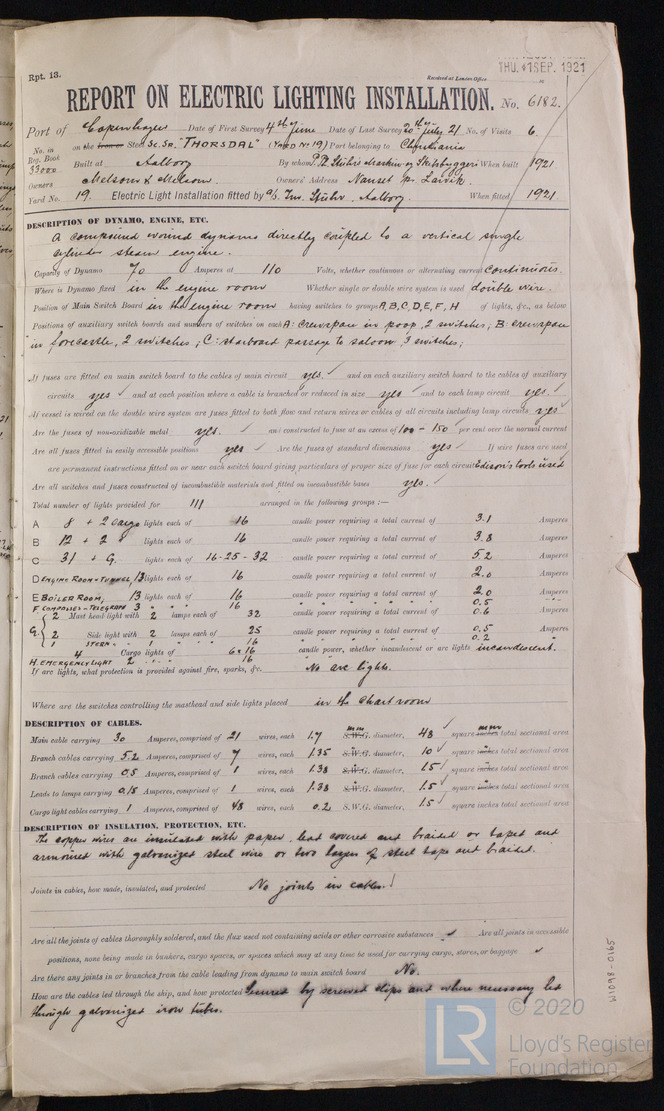 Rpt. 13.
Received at London Office
THU. 1 SEP. 1921
REPORT ON ELECTRIC LIGHTING INSTALLATION. No. 6182.
Port of Copenhagen Date of First Survey 4th June Date of Last Survey 20th July 21 No. of Visits 6
No. in Reg. Book on the Iron or Steel Sc. Sr. "THORSDAL" (YARD No 19) Port belonging to Christiania
Built at Aalborg By whom When built 1921
Owners Owners' Address Nanset pr. Larvik.
Yard No. 19. Electric Light Installation fitted by A/S Ths. Aalborg. When fitted 1921
DESCRIPTION OF DYNAMO, ENGINE, ETC.
A compound wound dynamo directly coupled to a vertical single
cylinder steam engine.
Capacity of Dynamo 70 Amperes at 110 Volts, whether continuous or alternating current continuous.
Where is Dynamo fixed in the engine room Whether single or double wire system is used double wire.
Position of Main Switch Board in the engine room having switches to groups A, B, C, D, E, F, H of lights, &c., as below
Positions of auxiliary switch boards and numbers of switches on each A: crewspace in poop, 2 switches; B: crewspace
in forecastle, 2 switches; C: starboard passage to saloon, 3 switches;
If fuses are fitted on main switch board to the cables of main circuit yes. ✓ and on each auxiliary switch board to the cables of auxiliary
circuits yes ✓ and at each position where a cable is branched or reduced in size yes ✓ and to each lamp circuit yes. ✓
If vessel is wired on the double wire system are fuses fitted to both flow and return wires or cables of all circuits including lamp circuits yes ✓
Are the fuses of non-oxidizable metal yes. ✓ and constructed to fuse at an excess of 100 - 150 ✓ per cent over the normal current
Are all fuses fitted in easily accessible positions yes ✓ Are the fuses of standard dimensions yes ✓ If wire fuses are used
are permanent instructions fitted on or near each switch board giving particulars of proper size of fuse for each circuit Edison's tools used
Are all switches and fuses constructed of incombustible materials and fitted on incombustible bases yes. ✓
Total number of lights provided for 111 arranged in the following groups :—
A 8 + 2 Cargo lights each of 16 candle power requiring a total current of 3.1 Amperes
B 12 + 2 " lights each of 16 candle power requiring a total current of 3.8 Amperes
C 31 + G. lights each of 16-25-32 candle power requiring a total current of 5.2 Amperes
D ENGINE ROOM-TUNNEL, 13 lights each of 16 candle power requiring a total current of 2.0 Amperes
E BOILER ROOM, 13 lights each of 16 candle power requiring a total current of 2.0 Amperes
F COMPASSES-TELEGRAPH 3 " " " 16 0.5 " "
G. 2 Mast head light with 2 lamps each of 32 candle power requiring a total current of 0.6 Amperes
2 Side light with 2 lamps each of 25 candle power requiring a total current of 0.5 Amperes
1 STERN " 1 " " " 16 " " " " " 0.2 "
4 Cargo lights of 6 x 16 candle power, whether incandescent or arc lights incandescent.
H. EMERGENCY LIGHT 2 " " " 16
If arc lights, what protection is provided against fire, sparks, &c. No arc lights.
Where are the switches controlling the masthead and side lights placed in the Chart room
DESCRIPTION OF CABLES.
Main cable carrying 30 Amperes, comprised of 21 wires, each 1.7 mm S.W.G. diameter, 48 ✓ square mm inches total sectional area
Branch cables carrying 5.2 Amperes, comprised of 7 wires, each 1.35 " S.W.G. diameter, 10 ✓ square " inches total sectional area
Branch cables carrying 0,5 Amperes, comprised of 1 wires, each 1.38 " S.W.G. diameter, 1.5 ✓ square " inches total sectional area
Leads to lamps carrying 0,15 Amperes, comprised of 1 wires, each 1.38 " S.W.G. diameter, 1.5 ✓ square " inches total sectional area
Cargo light cables carrying 1 Amperes, comprised of 48 wires, each 0.2 " S.W.G. diameter, 1.5 ✓ square inches total sectional area
DESCRIPTION OF INSULATION, PROTECTION, ETC.
The copper wires are insulated with paper, lead covered and braided or taped and
armoured with galvanized steel wire or two layers of steel tape and braided.
Joints in cables, how made, insulated, and protected No joints in cables.
Are all the joints of cables thoroughly soldered, and the flux used not containing acids or other corrosive substances ✓ Are all joints in accessible
positions, none being made in bunkers, cargo spaces, or spaces which may at any time be used for carrying cargo, stores, or baggage ✓
Are there any joints in or branches from the cable leading from dynamo to main switch board No.
How are the cables led through the ship, and how protected Secured by screwed clips and where necessary led
through galvanized iron tubes.
W1098-0165
© 2020
LR
Lloyd's Register
Foundation